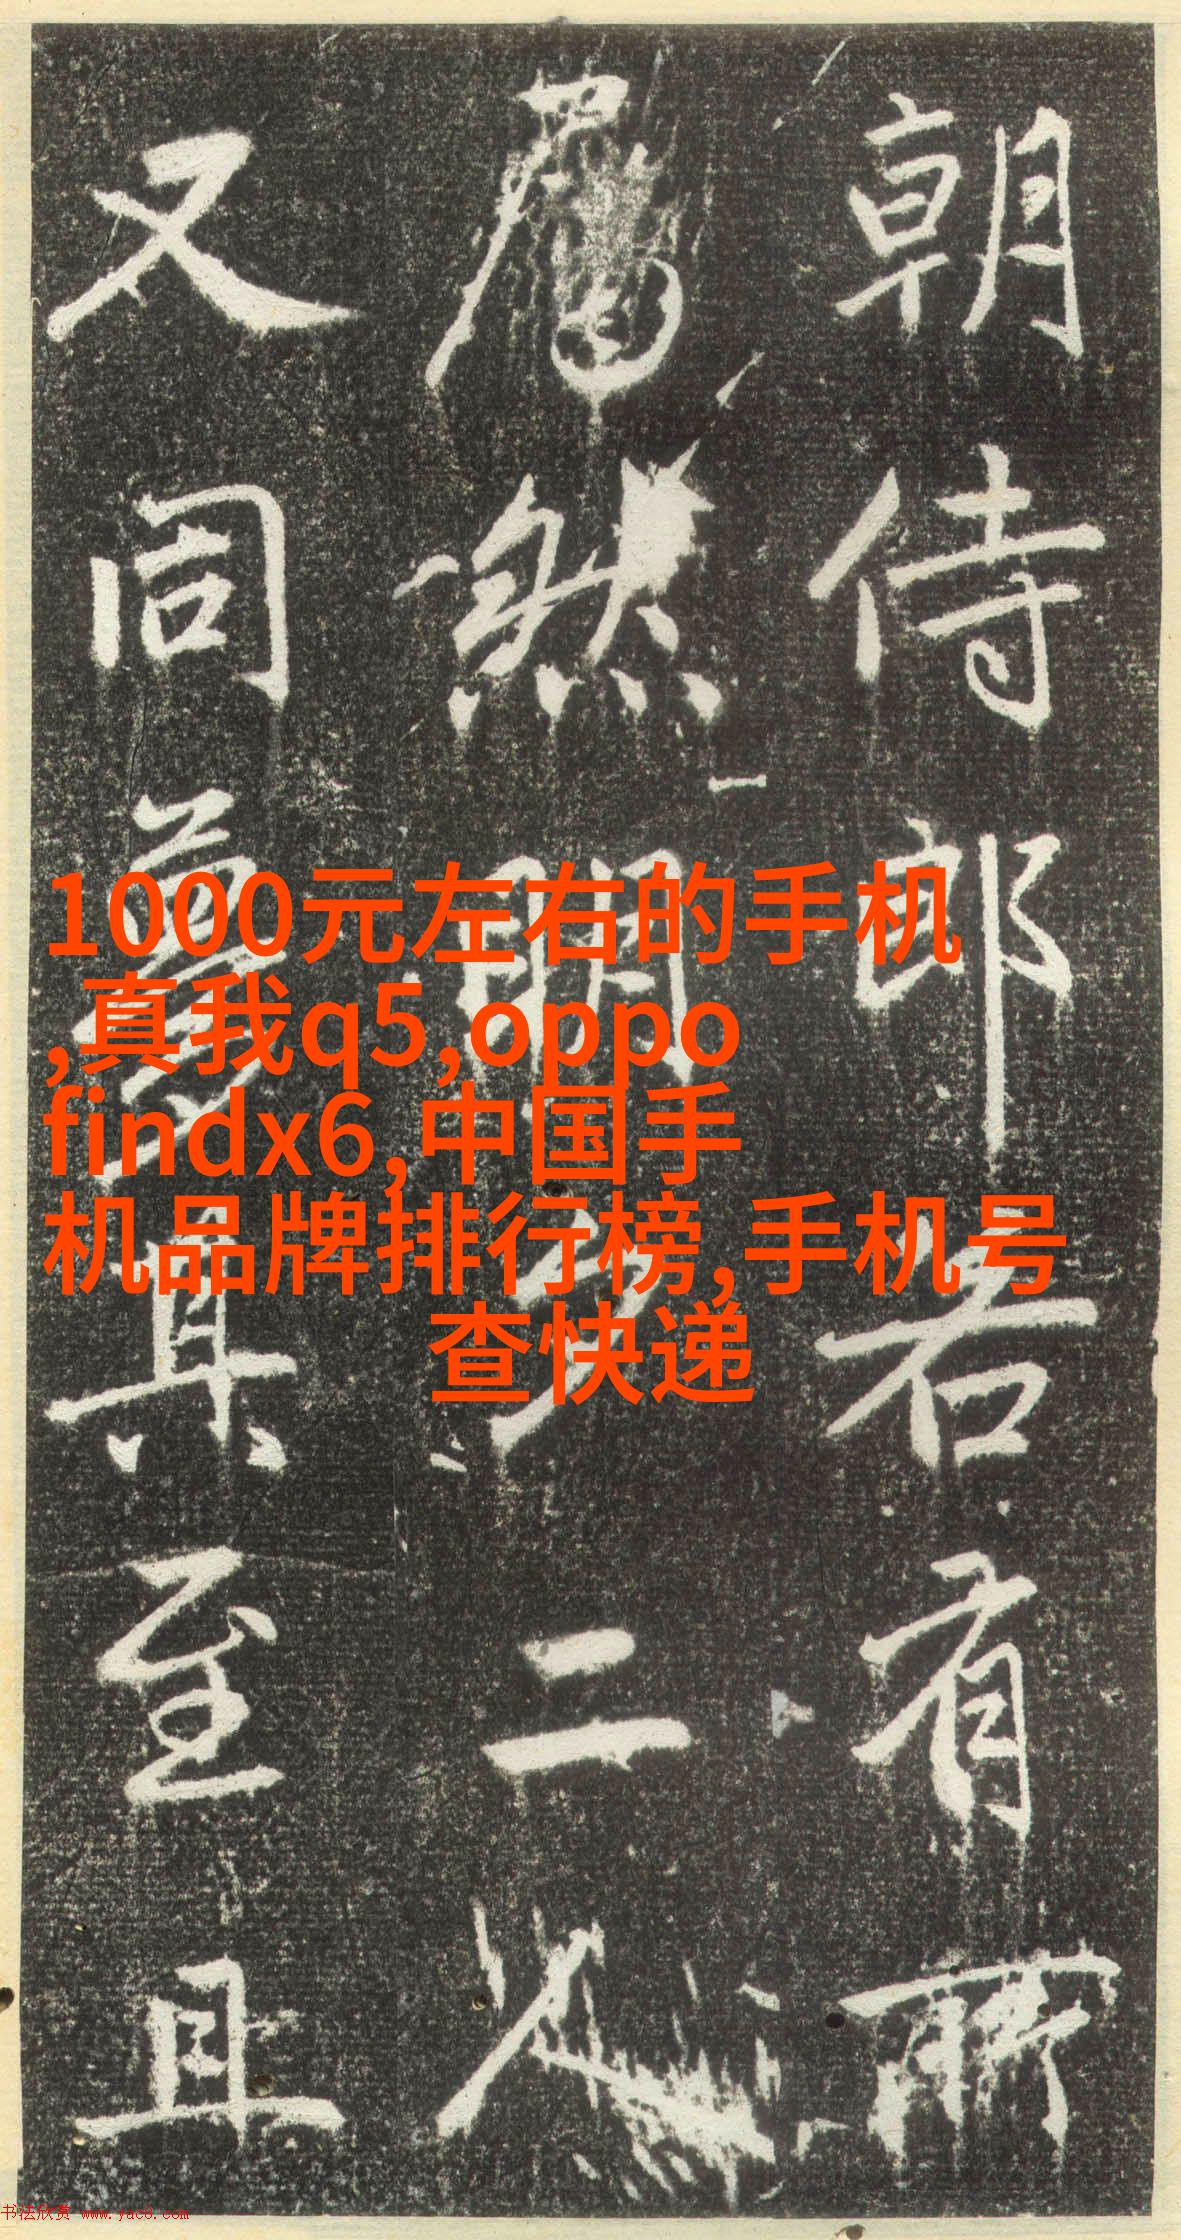 朝侍郎若有所
焉然明
二人
又同
其至且
1000元左右的手机
,真我q5,oppo
findx6,中国手
机品牌排行榜,手机号
查快递
书法欣赏 www.yac8.com